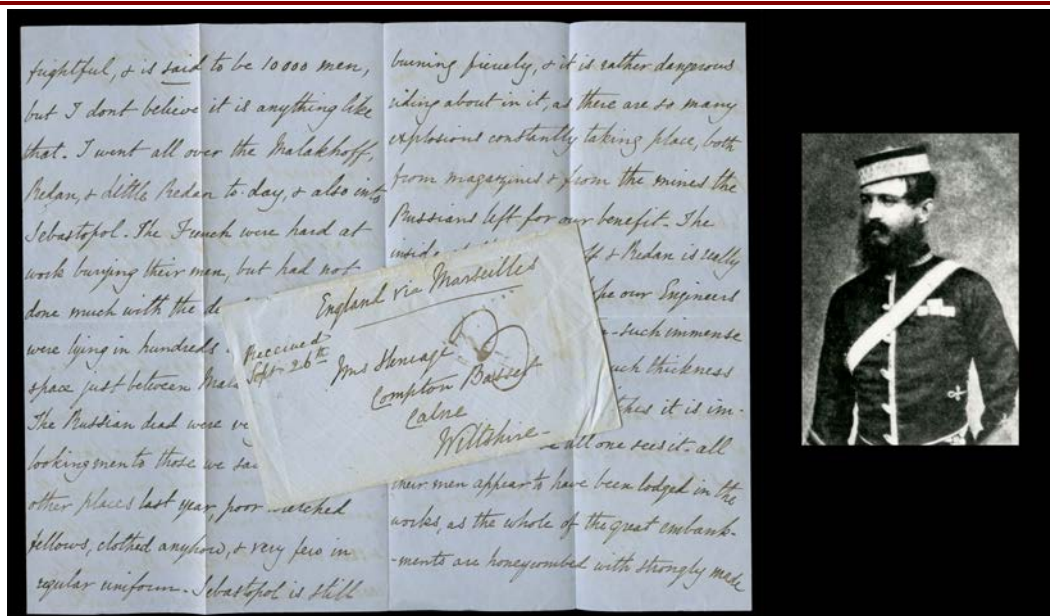 frightful, & is said to be 10000 men,
but I dont believe it is anything like
that. I went all over the Malakhoff,
Redan, & little Redan to day, & also into
Sebastopol. The French were hard at
work burying their men, but had not
done much with the
were lying in hundreds
space just between
The Russian dead were
looking men to those we
other places last year, poor
fellows, clothed anyhow, & very few in
regular uniform. Sebastopol is still
burning fiercely, & it is rather dangerous
riding about in it, as there are so many
explosions constantly taking place, both
from magazines & from the mines the
Russians left for our benefit. The
& Redan is really
our Engineers
such immense
such thickness
this it is im-
all one sees it. all
their men appear to have been lodged in the
works, as the whole of the great embank-
-ments are honeycombed with strongly made
England via Marseilles
Received
Sept. 26th
Mrs Heneage
Compton Basset
Calne
Wiltshire